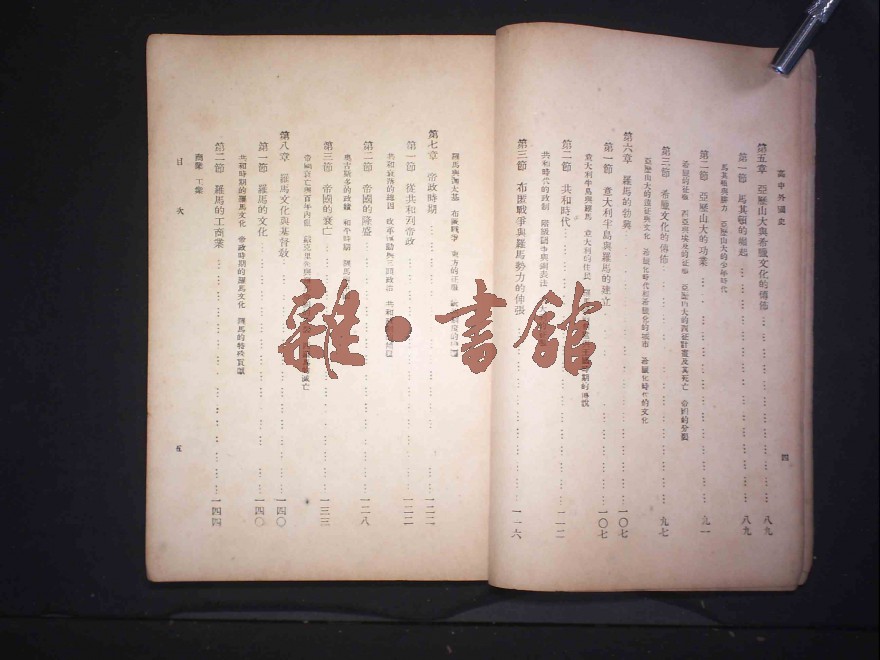 高中外國史
四
第五章 亞歷山大與希臘文化的傳佈………八九
第一節 馬其頓的崛起………八九
馬其頓與腓力 亞歷山大的少年時代
第二節 亞歷山大的功業………九一
希臘的征服 西亞與埃及的征服 亞歷山大的東征計畫及其死亡 帝國的分裂
第三節 希臘文化的傳佈………九七
亞歷山大的遠征與文化 希臘化時代和希臘化的城市 希臘化時代的文化
第六章 羅馬的勃興………一〇七
第一節 意大利半島與羅馬的建立………一〇七
意大利半島與羅馬 意大利的住民
第二節 共和時代………一一二
共和時代的政制 階級鬬爭與銅表法
第三節 布匿戰爭與羅馬勢力的伸張………一一六
羅馬與迦太基 布匿戰爭 東方的征服
第七章 帝政時期………一二二
第一節 從共和到帝政………一二二
共和衰落的原因 改革運動與三頭政治
第二節 帝國的隆盛………一二八
奧古斯多的政績 和平時期
第三節 帝國的衰亡………一三三
帝國衰亡與百年內亂
第八章 羅馬文化與基督教………一四〇
第一節 羅馬的文化………一四〇
共和時期的羅馬文化 帝政時期的羅馬文化 羅馬的特殊貢獻
第二節 羅馬的工商業………一四四
商業 工業
目次
五
雜·書館